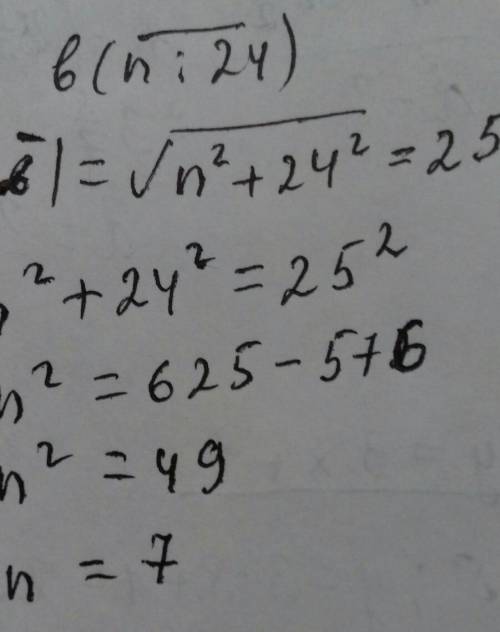 в(n; 24)
в| = √n² + 24² = 25
n² + 24² = 25²
n² = 625 - 576
n² = 49
n = 7